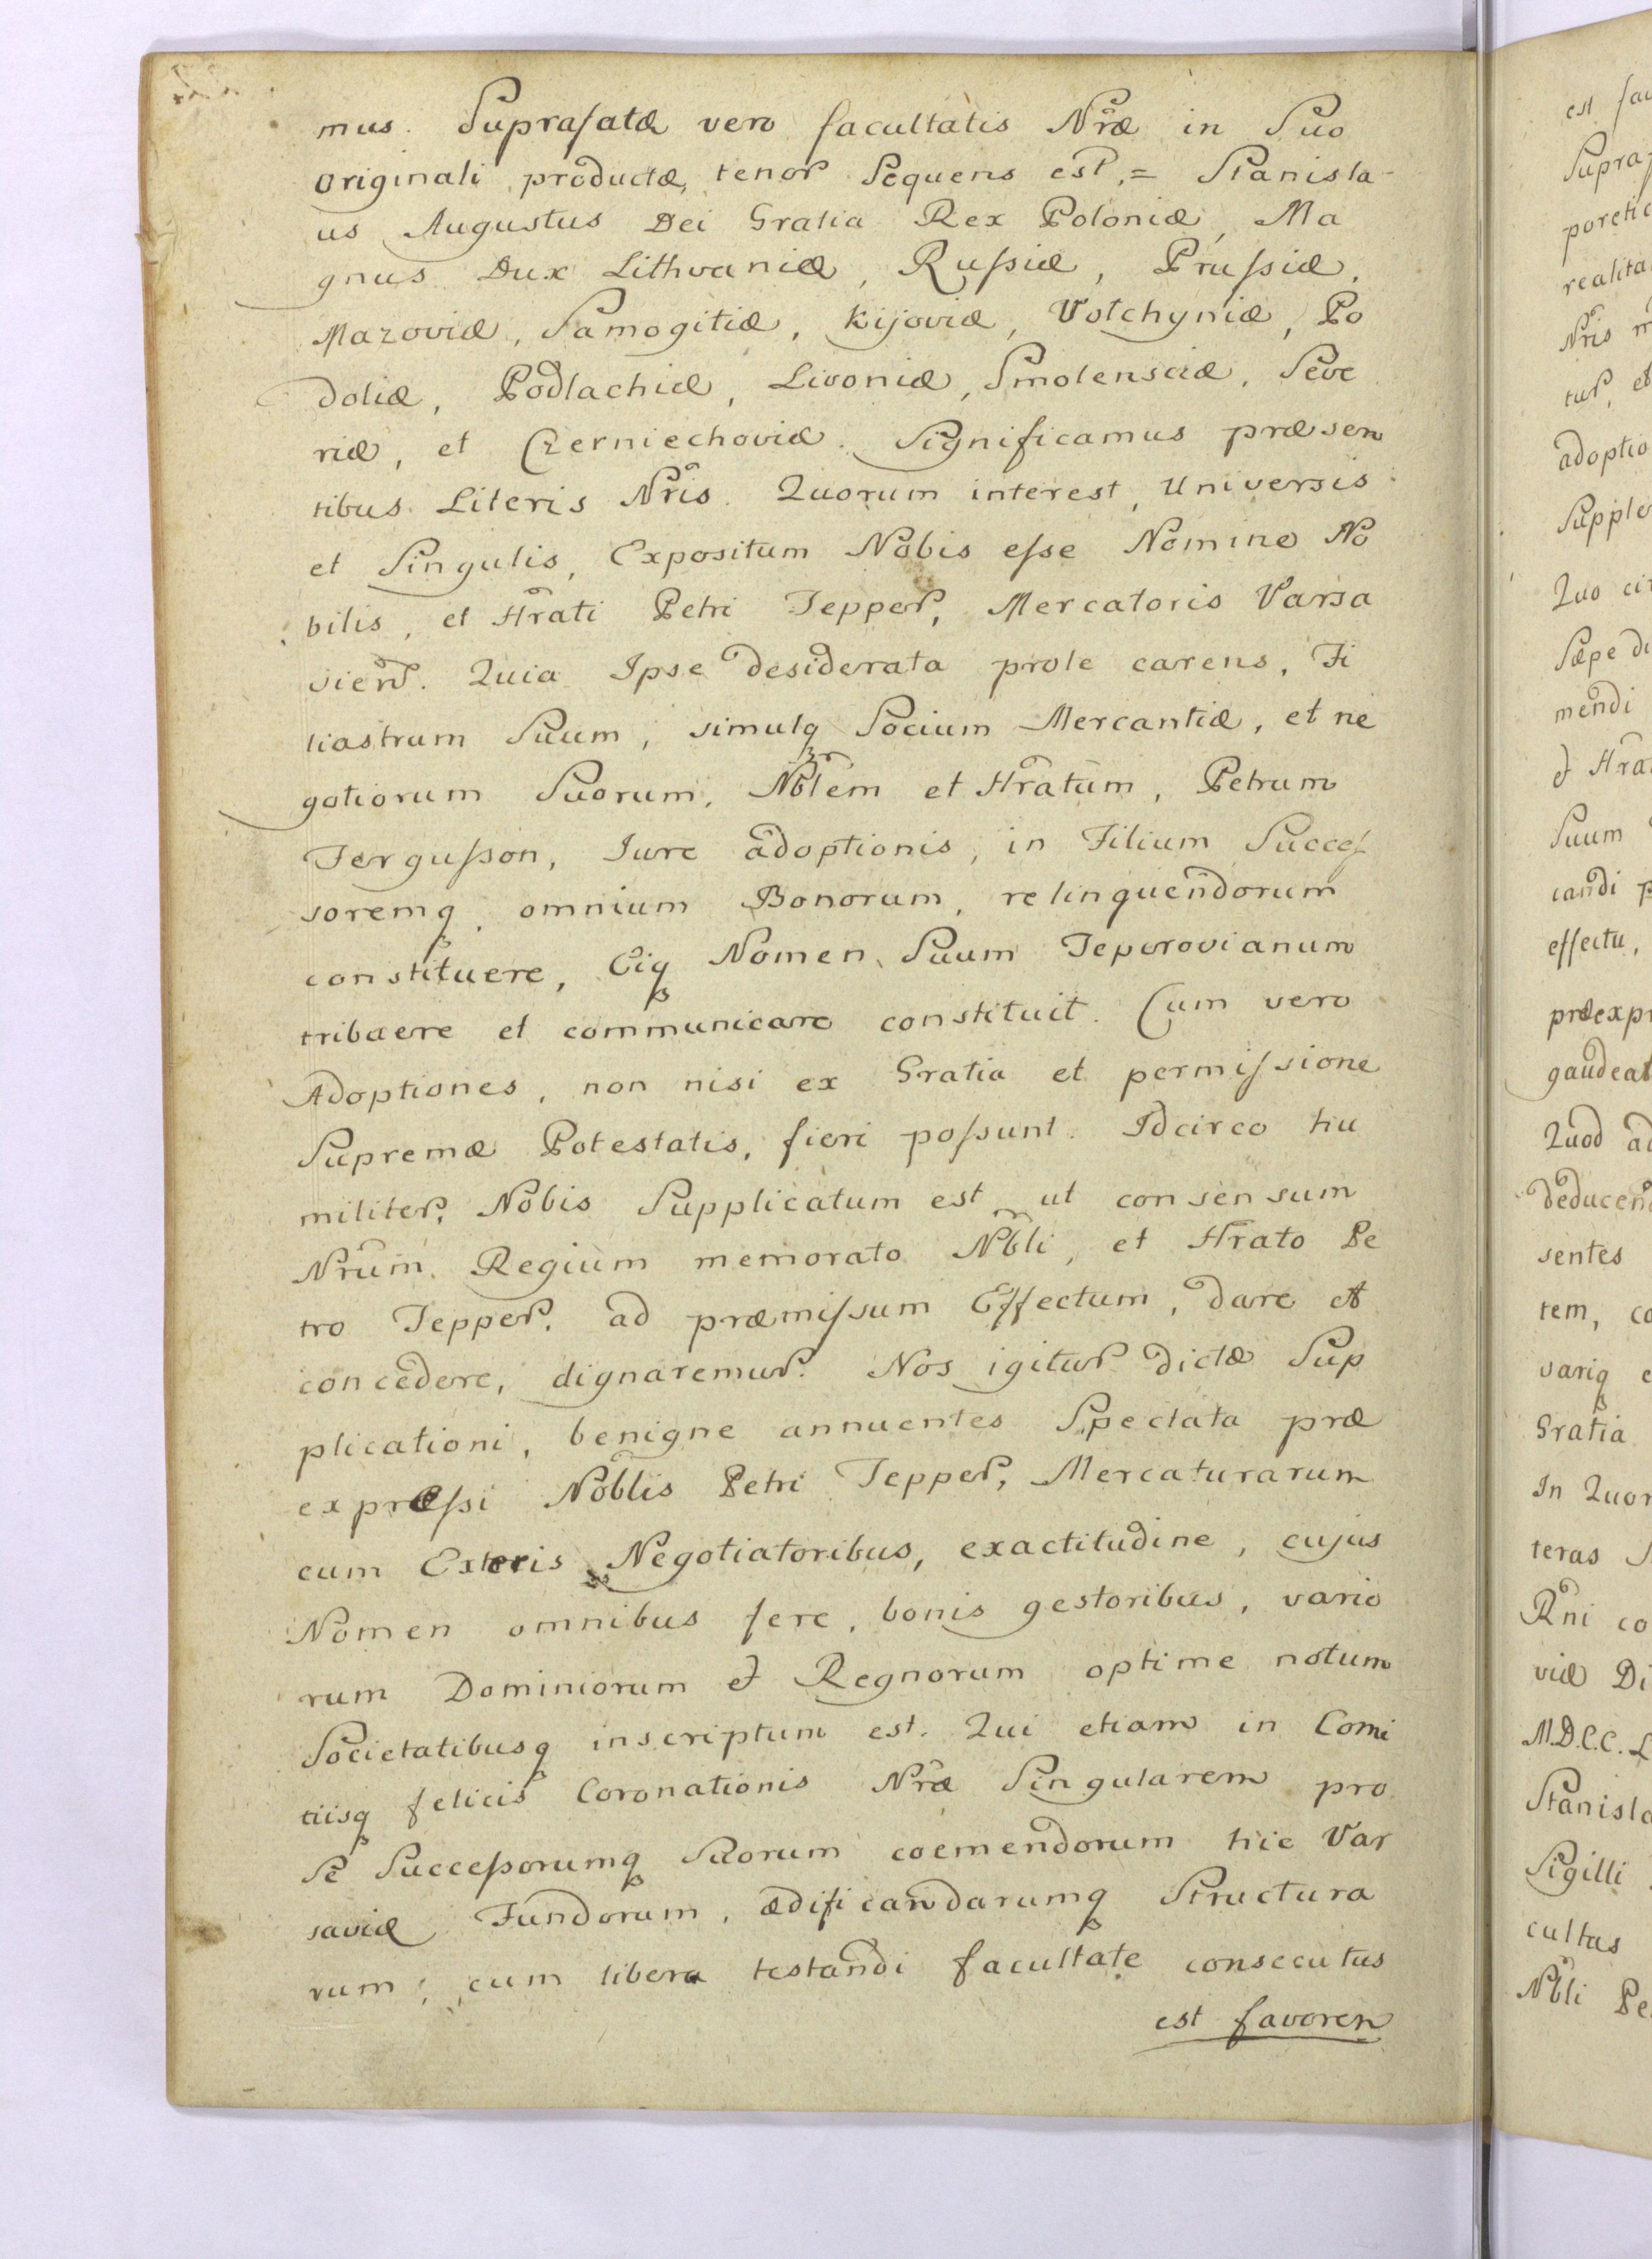 mus. Suprafatæ vero facultatis Nr̃æ in Suo
originali productæ, tenor Sequens est, = Stanisla-
us Augustus Dei Gratia Rex Poloniæ, Ma
gnus Dux Lithvaniæ, Rufsiæ, Prufsiæ,
Mazoviæ, Samogitiæ, Kijoviæ, Volchyniæ, Po
doliæ, Podlachiæ, Livoniæ, Smolensciæ, Seve
riæ, et Czerniechoviæ. Significamus præsen
tibus Literis Nr̃is. Quorum interest, Universis
et Singulis, Expositum Nobis efse Nomine No
bilis, et Hr̃ati Petri Tepper, Mercatoris Varsa
vien̄. Quia Ipse desiderata prole carens, Fi
liastrum Suum, simulq̨ Socium Mercantiæ, et ne
gotiorum Suorum, Nbl̃em et Hr̃atum, Petrum
Fergufson, Iure adoptionis, in Filium Succef
soremq̨, omnium Bonorum, relinquendorum
constituere, Eiq̨ Nomen Suum Teperovianum
tribuere et communicare constituit. Cum vero
Adoptiones, non nisi ex Gratia et permifsione
Supremæ Potestatis, fieri pofsunt. Idcirco hu
militer, Nobis Supplicatum est ut consensum
Nr̃um Regium memorato Nb̃li, et Hr̃ato Pe
tro Tepper, ad præmifsum Effectum, dare et
concedere, dignaremur. Nos igitur dictæ Sup
plicationi, benigne annuentes Spectata præ
exprefsi Nob̃lis Petri Tepper, Mercaturarum
cum Exteris Negotiatoribus, exactitudine, cujus
Nomen omnibus fere, bonis gestoribus, vario
rum Dominiorum et Regnorum optime notum
Societatibusq̨ inscriptum est. Qui etiam in Comi
tiisq̨ felicis Coronationis Nr̃æ Singularem pro
Se Succefsorumq̨ Suorum coemendorum hic Var
saviæ Fundorum, ædificandarumq̨ Structura
rum, cum libera testandi facultate consecutus
est favorem
est fav
Supraf
poretic
realita
Nr̃is m
tur, et
adoptio
Supple
Quo cir
Sæpe di
mendi
et Hr̃a
Suum
candi p
effectu,
præexpr
gaudeat
Quod ad
deducen
sentes
tem, co
variq̨ e
Gratia
In Quor
teras S
Rñi co
viæ Di
M.D.C.C.L
Stanisla
Sigilli
cultas
Nb̃li Pe